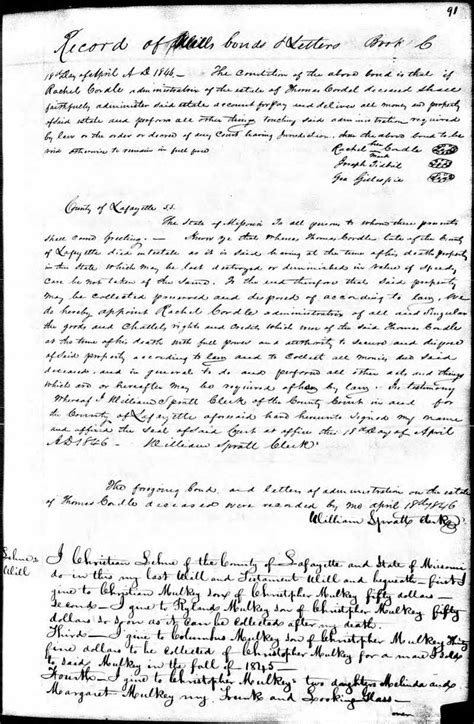 91
Record of Wills bonds & Letters Book C
18th Day of April A D 1846 — The Condition of the above bond is that if
Rachel Cordle administratrix of the estate of Thomas Cordel deceased shall
faithfully administer said estate account for pay and deliver all money and property
of said estate and perform all other things touching said administration required
by law or the order or decree of any Court having Jurisdiction then the above bond to be
void otherwise to remain in full force
Rachel her Cordle
mark
Joseph
Geo Gillespie
County of Lafayette ss.
The State of Missouri To all persons to whom these presents
shall come Greeting — Know ye that whereas Thomas Cordle late of the County
of Lafayette died intestate as it is said having at the time of his death property
in this State which may be lost destroyed or diminished in value if speedy
care be not taken of the same. To the end therefore that said property
may be collected preserved and disposed of according to law, We
do hereby appoint Rachel Cordle administratrix of all and Singular
the goods and Chattels, rights and Credits which were of the said Thomas Cordle
at the time of his death with full power and authority to secure and dispose
of said property according to law and to Collect all monies due said
deceased, and in general to do and perform all other acts and things
which are or hereafter may be required of her by law. In testimony
whereof I William Spratt Clerk of the County Court in and for
the County of Lafayette aforesaid have hereunto signed my name
and affixed the Seal of said Court at office this 18th Day of April
A D 1846 — William Spratt Clerk
The foregoing bond, and letters of administration on the estate
of Thomas Cordle deceased were recorded by me April 18th 1846
William Spratt Clerk
Will
I Christian Sehne of the County of Lafayette and State of Missouri
do in this my last Will and Testament Will and bequeath — first
I give to Christian Mulkey son of Christopher Mulkey fifty dollars —
Second — I give to Ryland Mulkey son of Christopher Mulkey fifty
dollars so soon as it can be collected after my death.
Third — I give to Columbus Mulkey son of Christopher Mulkey thirty
five dollars to be collected of Christopher Mulkey for a mare I sold
to said Mulkey in the fall of 1845 —
Fourth — I give to Christopher Mulkey's two daughters Malinda and
Margaret Mulkey my Trunk and Looking Glass —
over